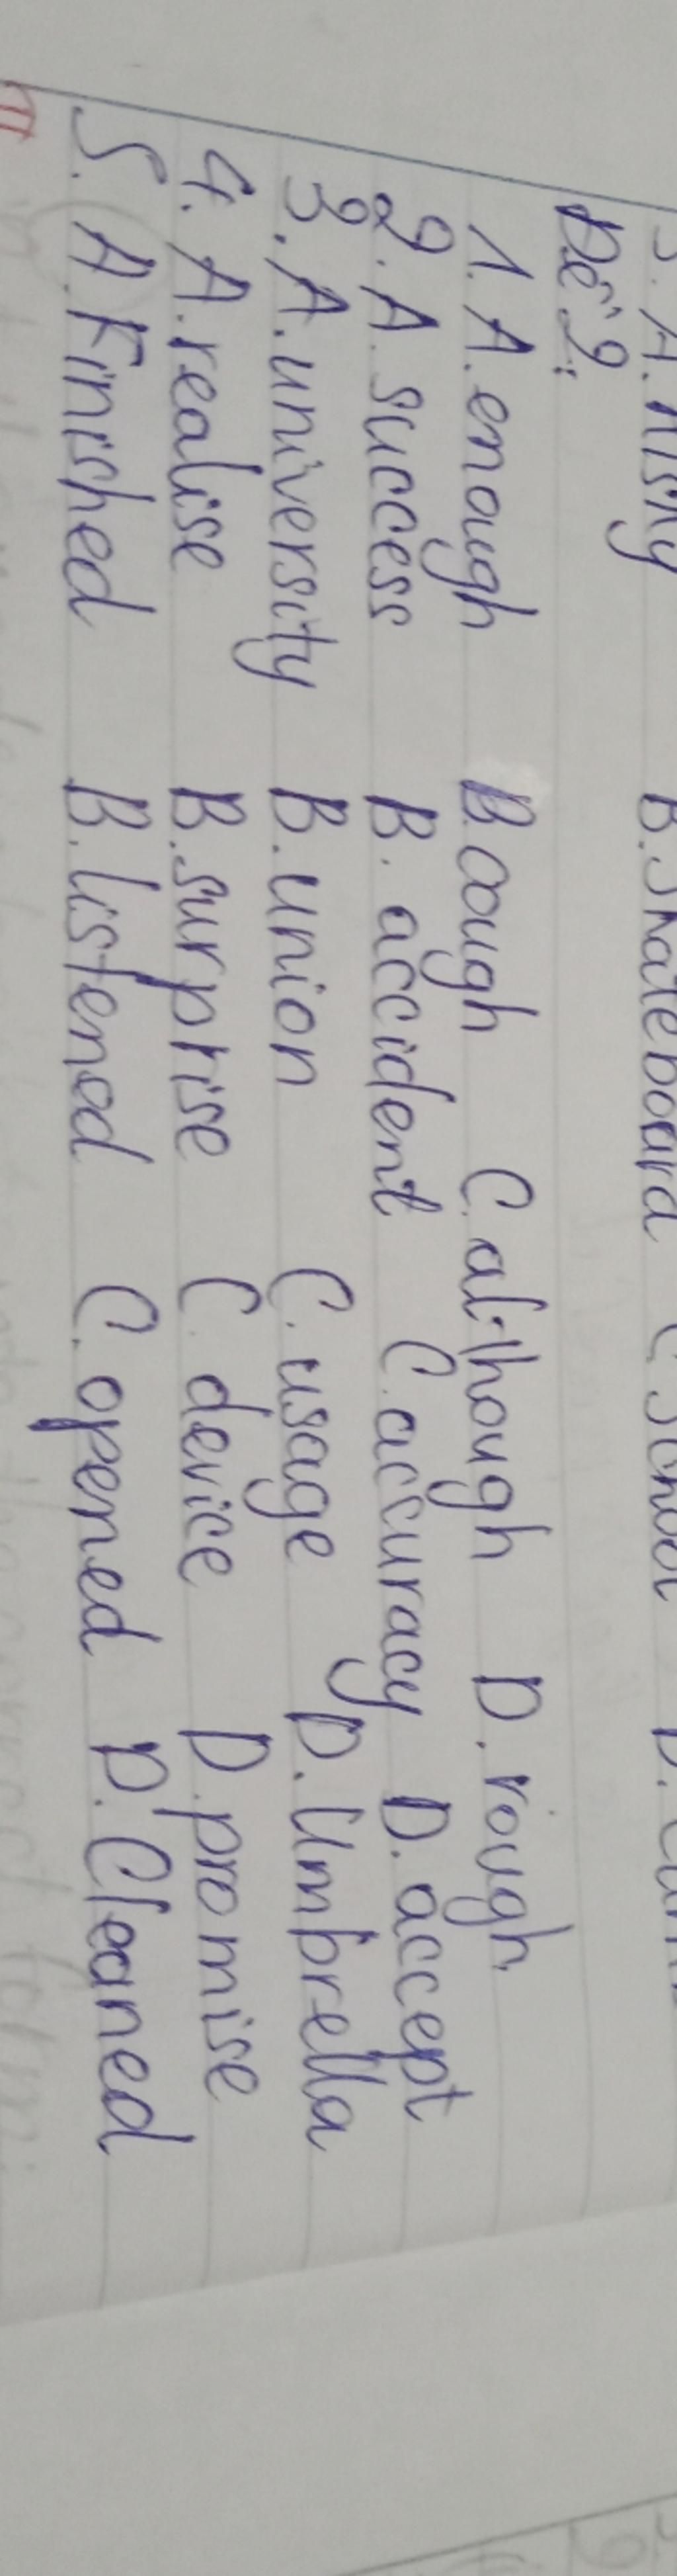 B. Skateboard C. School
Đề 2:
1. A. enough B. cough C. although D. rough
2. A. success B. accident C. accuracy D. accept
3. A. university B. union C. usage D. Umbrella
4. A. realise B. surprise C. device D. promise
5. A. Finished B. listened C. opened D. Cleaned